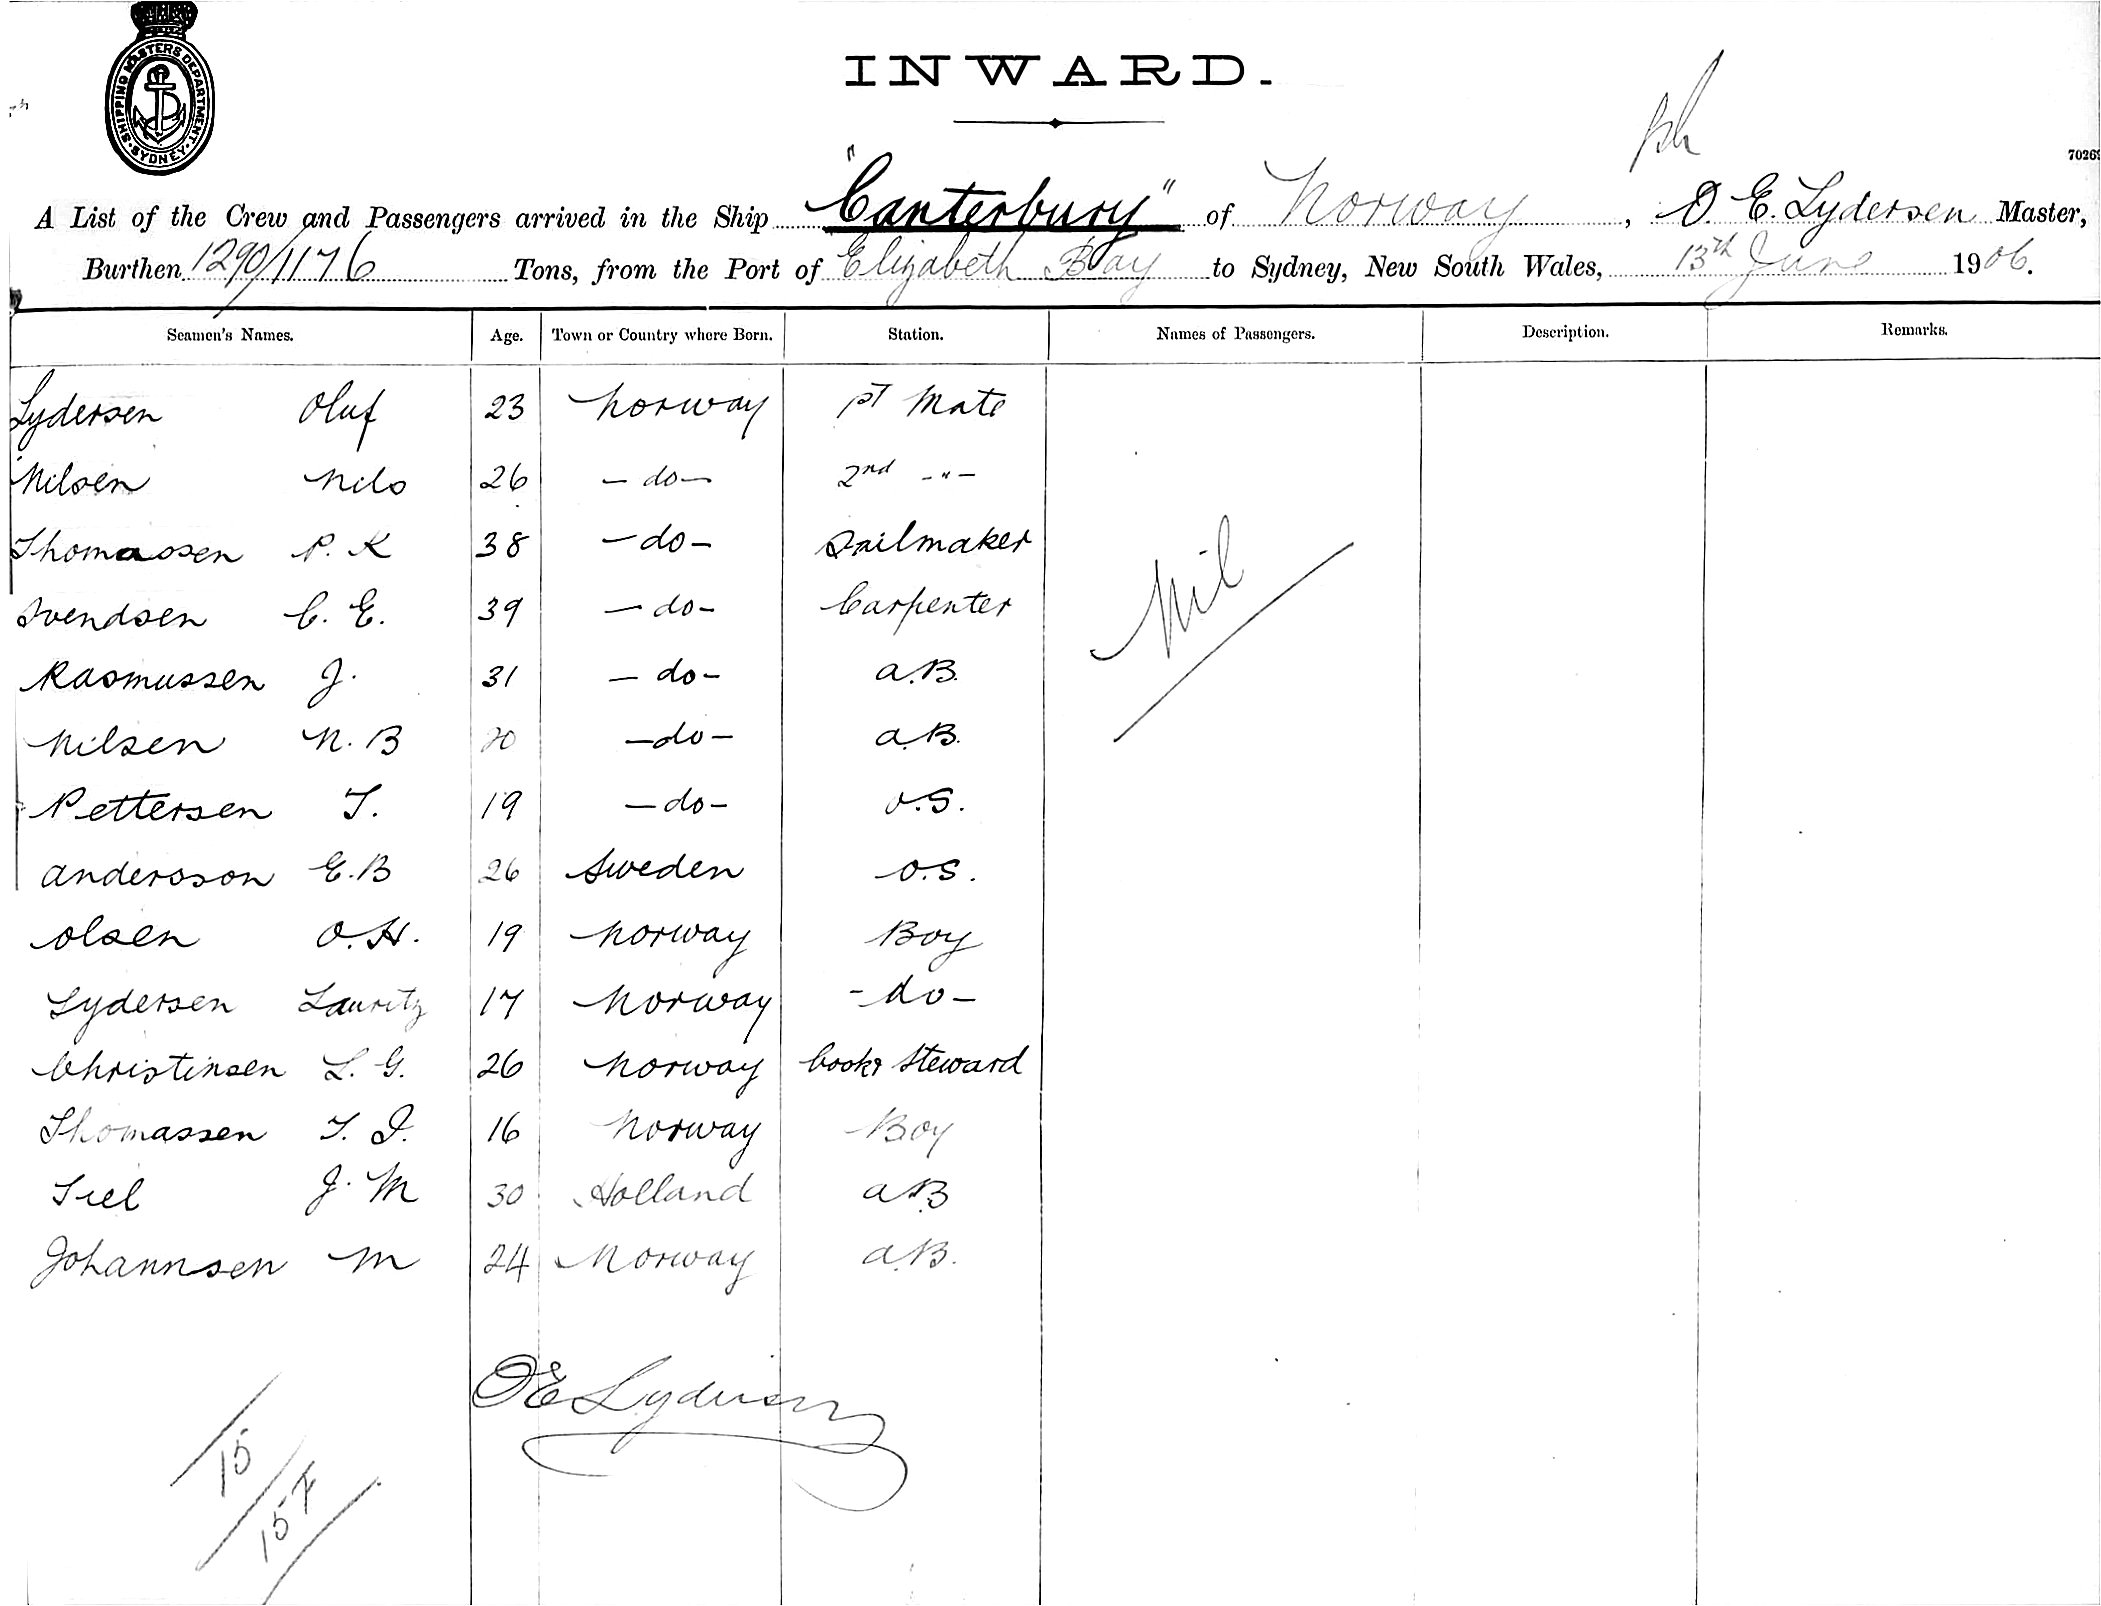 SHIPPING MASTERS DEPARTMENT · SYDNEY ·
INWARD.
70269
A List of the Crew and Passengers arrived in the Ship "Canterbury" of Norway, O. E. Lydersen Master,
Burthen 1290/1176 Tons, from the Port of Elizabeth Bay to Sydney, New South Wales, 13th June 1906.
Seamen's Names. Age. Town or Country where Born. Station. Names of Passengers. Description. Remarks.
Lydersen Oluf 23 Norway 1st Mate
Nilsen Nils 26 - do - 2nd - " -
Thomassen P. K 38 - do - Sailmaker
Svendsen C. E. 39 - do - Carpenter
Nil
Rasmussen J. 31 - do - A.B.
Nilsen N. B 20 - do - A.B.
Pettersen T. 19 - do - O.S.
Andersson E. B 26 Sweden O.S.
Olsen O. H. 19 Norway Boy
Lydersen Lauritz 17 Norway - do -
Christinsen L. G. 26 Norway Cook & Steward
Thomassen T. I. 16 Norway Boy
Tiel J. M 30 Holland A B
Johannsen M 24 Norway A.B.
O E Lydersen
15
15 F